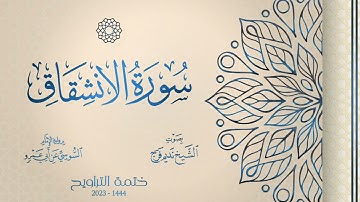 سُورَةُ الانشقاق
بصوت
الشيخ نديم فرج
برواية الإمام
السوسي عن أبي عمرو
ختمة التراويح
2023 - 1444